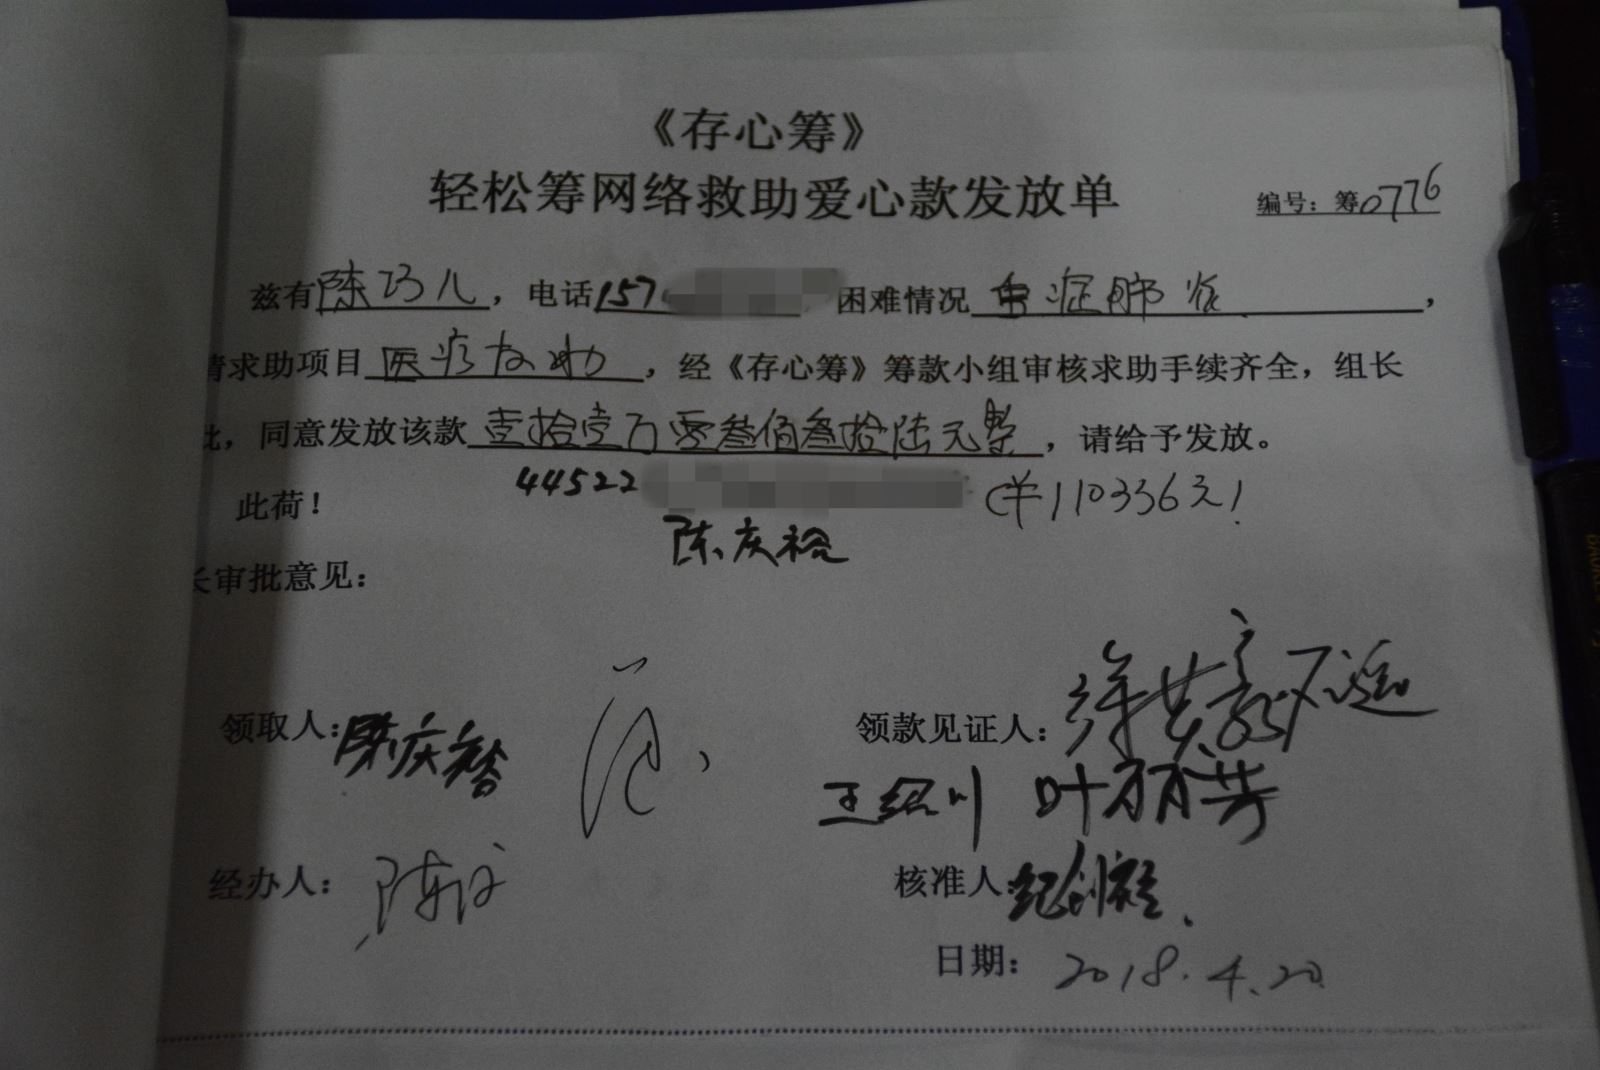 《存心筹》
轻松筹网络救助爱心款发放单
编号：筹0776
兹有陈巧儿，电话157 困难情况重症肺炎，
请求助项目医疗救助，经《存心筹》筹款小组审核求助手续齐全，组长
批，同意发放该款壹拾壹万零叁佰叁拾陆元整，请给予发放。
44522 (￥110336元)
此荷！
陈庆裕
长审批意见：
领取人：陈庆裕
领款见证人：
叶丽芳
经办人：陈
核准人：
日期：2018.4.20